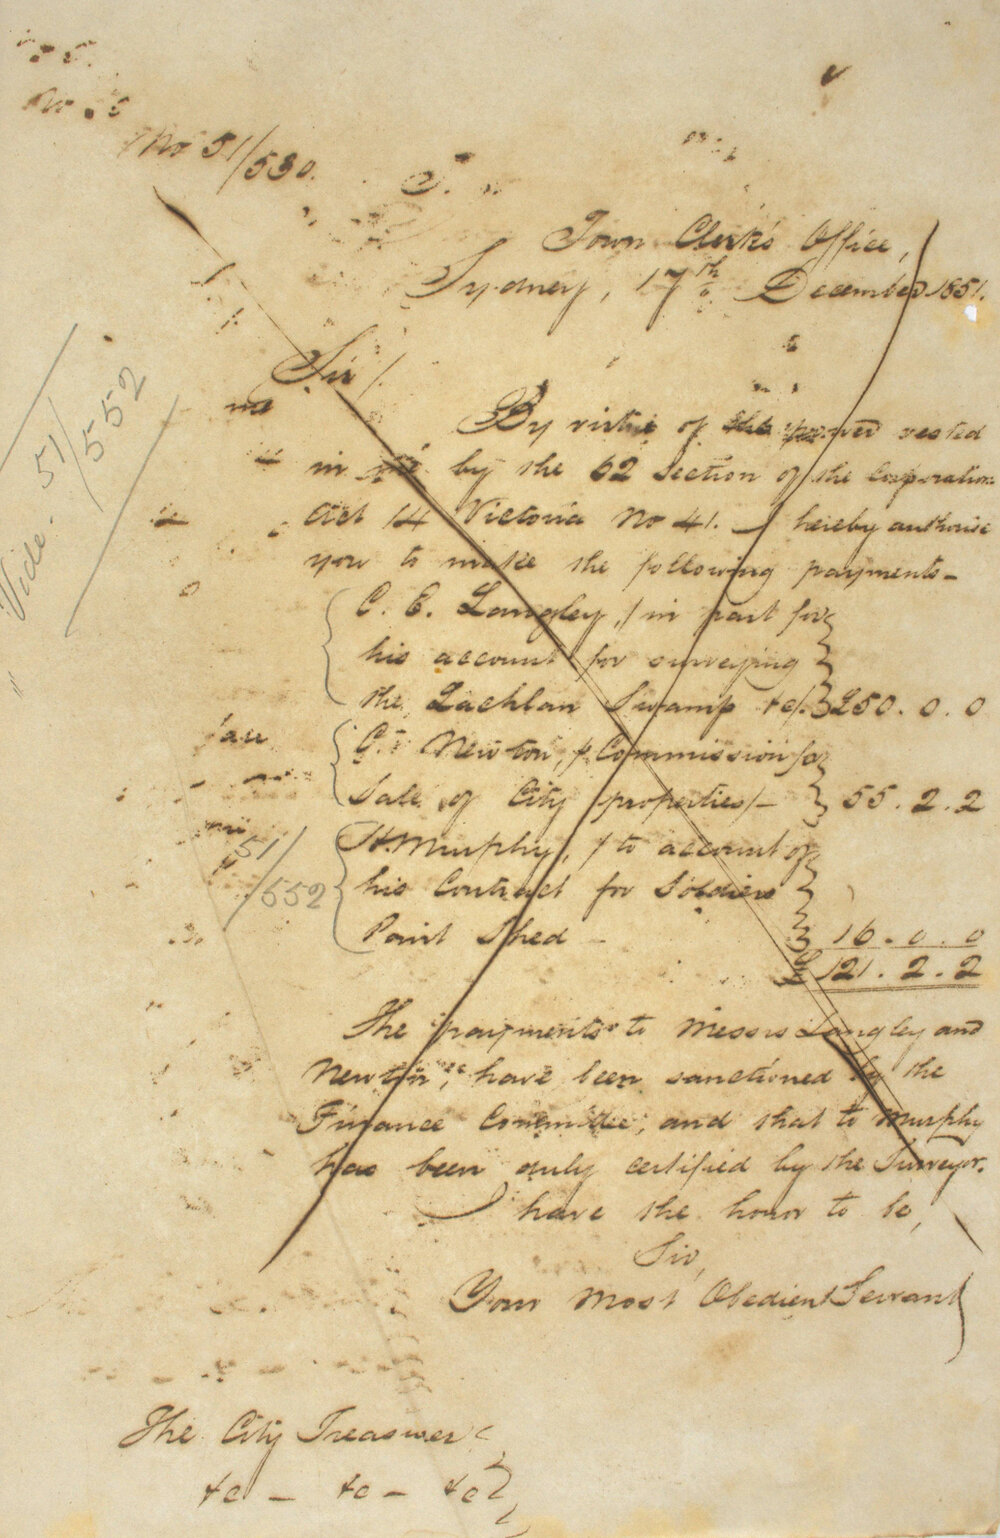 No 51/530.
Town Clerk's Office,
Sydney, 17th December 1851.
Sir/.
Vide. 51/552
By virtue of the power vested
in me by the 62 Section of the Corporation
Act 14 Victoria No 41. I hereby authorise
you to make the following payments -
C. E. Langley, / in part for
his account for surveying
the Lachlan Swamp &c/. £50. 0. 0
G. Newton, / Commission for
Sale of City properties/- 55. 2. 2
51/552
H. Murphy, / to account of
his Contract for Soldiers
Point Shed - 16. 0. 0
£121. 2. 2
The payments to Messrs Langley and
Newton, have been sanctioned by the
Finance Committee, and that to Murphy
has been duly certified by the Surveyor.
I have the honor to be,
Sir,
Your Most Obedient Servant
The City Treasurer
&c - &c - &c